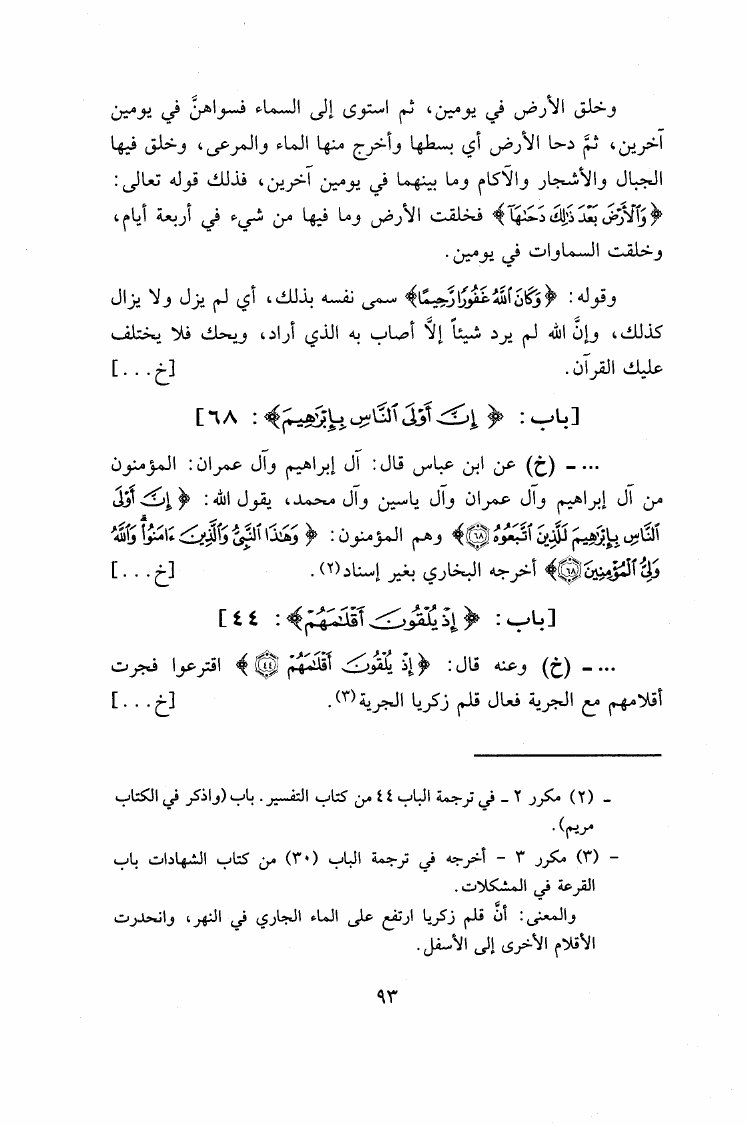 وخلق الأرض في يومين، ثم استوى إلى السماء فسواهنَّ في يومين
آخرين، ثمَّ دحا الأرض أي بسطها وأخرج منها الماء والمرعى، وخلق فيها
الجبال والأشجار والآكام وما بينهما في يومين آخرين، فذلك قوله تعالى:
﴿وَٱلْأَرْضَ بَعْدَ ذَٰلِكَ دَحَىٰهَآ﴾ فخلقت الأرض وما فيها من شيء في أربعة أيام،
وخلقت السماوات في يومين.
وقوله: ﴿وَكَانَ ٱللَّهُ غَفُورًا رَّحِيمًا﴾ سمى نفسه بذلك، أي لم يزل ولا يزال
كذلك، وإنَّ الله لم يرد شيئاً إلَّا أصاب به الذي أراد، ويحك فلا يختلف
عليك القرآن. [خ...]
[باب: ﴿إِنَّ أَوْلَى ٱلنَّاسِ بِإِبْرَٰهِيمَ﴾: ٦٨]
... ـ (خ) عن ابن عباس قال: آل إبراهيم وآل عمران: المؤمنون
من آل إبراهيم وآل عمران وآل ياسين وآل محمد، يقول الله: ﴿إِنَّ أَوْلَى
ٱلنَّاسِ بِإِبْرَٰهِيمَ لَلَّذِينَ ٱتَّبَعُوهُ ٦٨﴾ وهم المؤمنون: ﴿وَهَٰذَا ٱلنَّبِىُّ وَٱلَّذِينَ ءَامَنُوا۟ۗ وَٱللَّهُ
وَلِىُّ ٱلْمُؤْمِنِينَ ٦٨﴾ أخرجه البخاري بغير إسناد(٢). [خ...]
[باب: ﴿إِذْ يُلْقُونَ أَقْلَٰمَهُمْ﴾: ٤٤]
... ـ (خ) وعنه قال: ﴿إِذْ يُلْقُونَ أَقْلَٰمَهُمْ ٤٤﴾ اقترعوا فجرت
أقلامهم مع الجرية فعال قلم زكريا الجرية(٣). [خ...]
ـ (٢) مكرر ٢ ـ في ترجمة الباب ٤٤ من كتاب التفسير. باب (واذكر في الكتاب
مريم).
ـ (٣) مكرر ٣ - أخرجه في ترجمة الباب (٣٠) من كتاب الشهادات باب
القرعة في المشكلات.
والمعنى: أنَّ قلم زكريا ارتفع على الماء الجاري في النهر، وانحدرت
الأقلام الأخرى إلى الأسفل.
٩٣